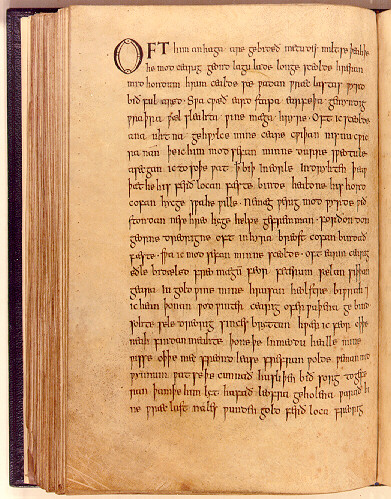 OFT him anhaga are gebideð metudes miltse þeah þe
he mod cearig geond lagu lade longe sceolde hreran
mid hondum hrim cealde sæ ƿadan ƿræc lastas ƿyrd
bið ful aræd · Sƿa cƿæð eard stapa earfeþa gemyndig
ƿraþra ƿæl sleahta ƿine mæga hryre · Oft ic sceolde
ana uhtna gehƿylce mine ceare cƿiþan nis nu cƿic
ra nan þe ic him mod sefan minne durre sƿeotule
asecgan ic to soþe ƿat þ biþ in eorle indryhten þeaƿ
þæt he his ferð locan fæste binde healdne his hord
cofan hycge sƿa he ƿille · Ne mæg ƿerig mod ƿyrde ƿið
stondan ne se hreo hyge helpe gefremman · for ðon dom
georne dreorigne oft in hyra breost cofan bindað
fæste · sƿa ic mod sefan minne sceolde · oft earm cearig
eðle bidæled freo mægum feor feterum sælan siþþan
geara iu gold ƿine mine hrusan heolstre biƿrah 7
ic hean þonan ƿod ƿinter cearig ofer ƿaþena ge bind
sohte sele dreorig sinces bryttan hƿær ic feor oþþe
neah findan meahte þone þe in meodu healle mine
ƿisse oþþe mec freond lease frefran ƿolde ƿenian mid
ƿynnum ƿat se þe cunnað hu sliþen bið sorg to gefe
ran þam þe him lyt hafað leofra geholena ƿarað hi
ne ƿræc last nales ƿunden gold ferð loca freorig